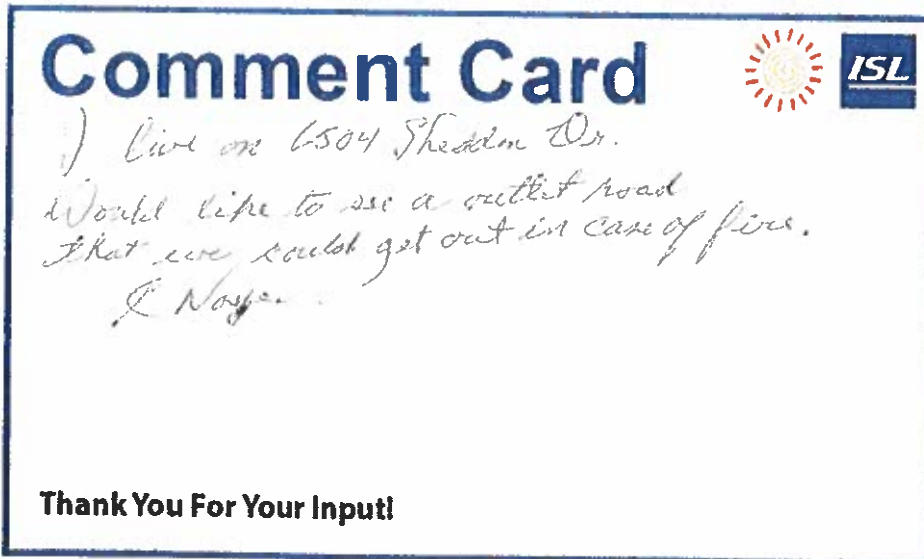 Comment Card
ISL
I live on 6504 Sheddon Dr.
Would like to see a outlet road
that we could get out in case of fire.
Thank You For Your Input!